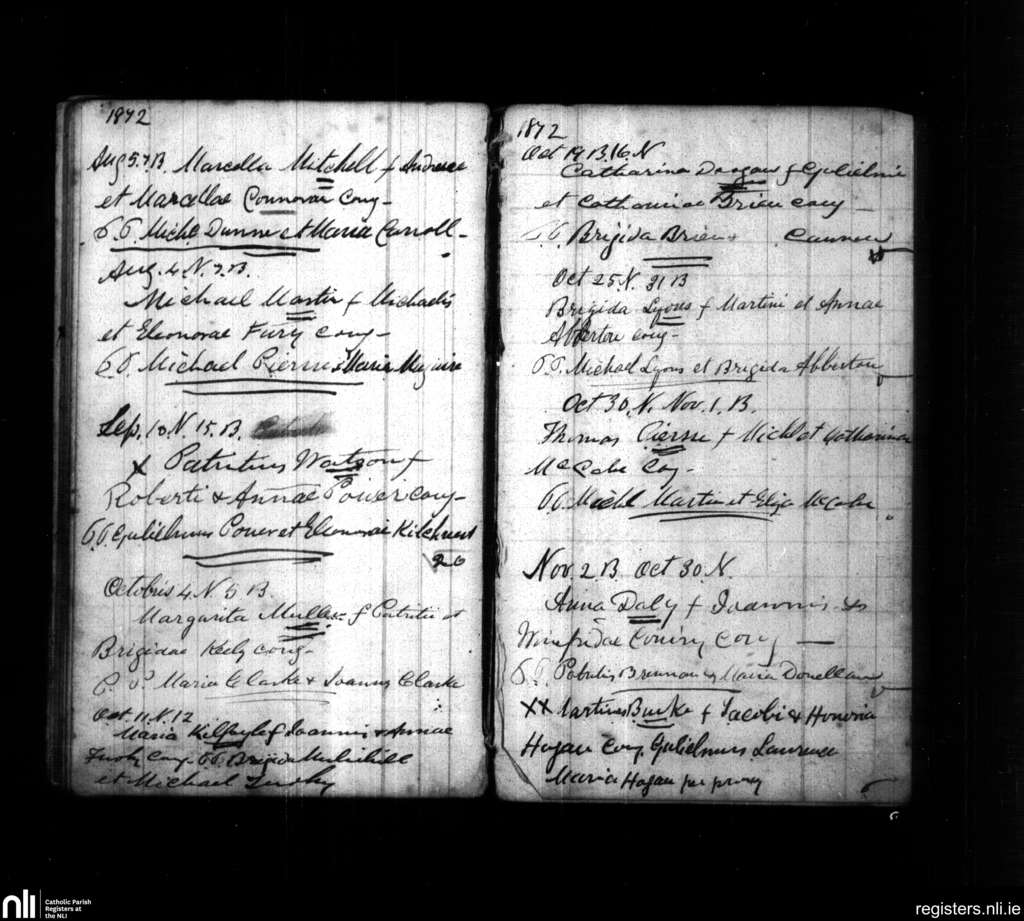 1872
Aug 5. 7. B. Marcella Mitchell f Andreae
et Marcellae Connorai Cong -
P.P. Michl Dunne et Maria Carroll -
Aug. 4. N. 7. B.
Michael Martin f Michaelis
et Eleonorae Fury cong -
P.P. Michael Pierse & Maria Maguire
Sep. 10. N. 15. B.
x Patritius Watson f
Roberti & Annae Power cong -
P.P. Gulielmus Power et Eleonorae
20
Octobris 4. N. 5 B.
Margarita f Patritii et
Brigidae Kely cong -
P. P. Maria Clarke & Joannes Clarke
Oct. 11. N. 12
Maria f Joannis & Annae
Cong. P.P. Brigida Mulvihill
et Michael
1872
Oct 19 B. 16. N
Catharina f Gulielmi
et Catharinae Brien cong -
P.P. Brigida Brien
Oct 25 N. 31 B
Brigida Lyons f Martini et Annae
Abberton cong -
P.P. Michael Lyons et Brigida Abberton
Oct 30. N. Nov. 1. B.
Thomas Pierse f Michl et Catharinae
McCabe Cog -
P.P. Michl Martin et Eliza McCabe
Nov. 2. B Oct 30. N.
Anna Daly f Joannis &
Winifridae cong —
P.P. Patritis Brennan & Maria Donellan
xx Martinus Burke f Jacobi & Honoria
Hogan Cong Gulielmus Laurence
Maria Hogan per proxy
nli
Catholic Parish
Registers at
the NLI
registers.nli.ie